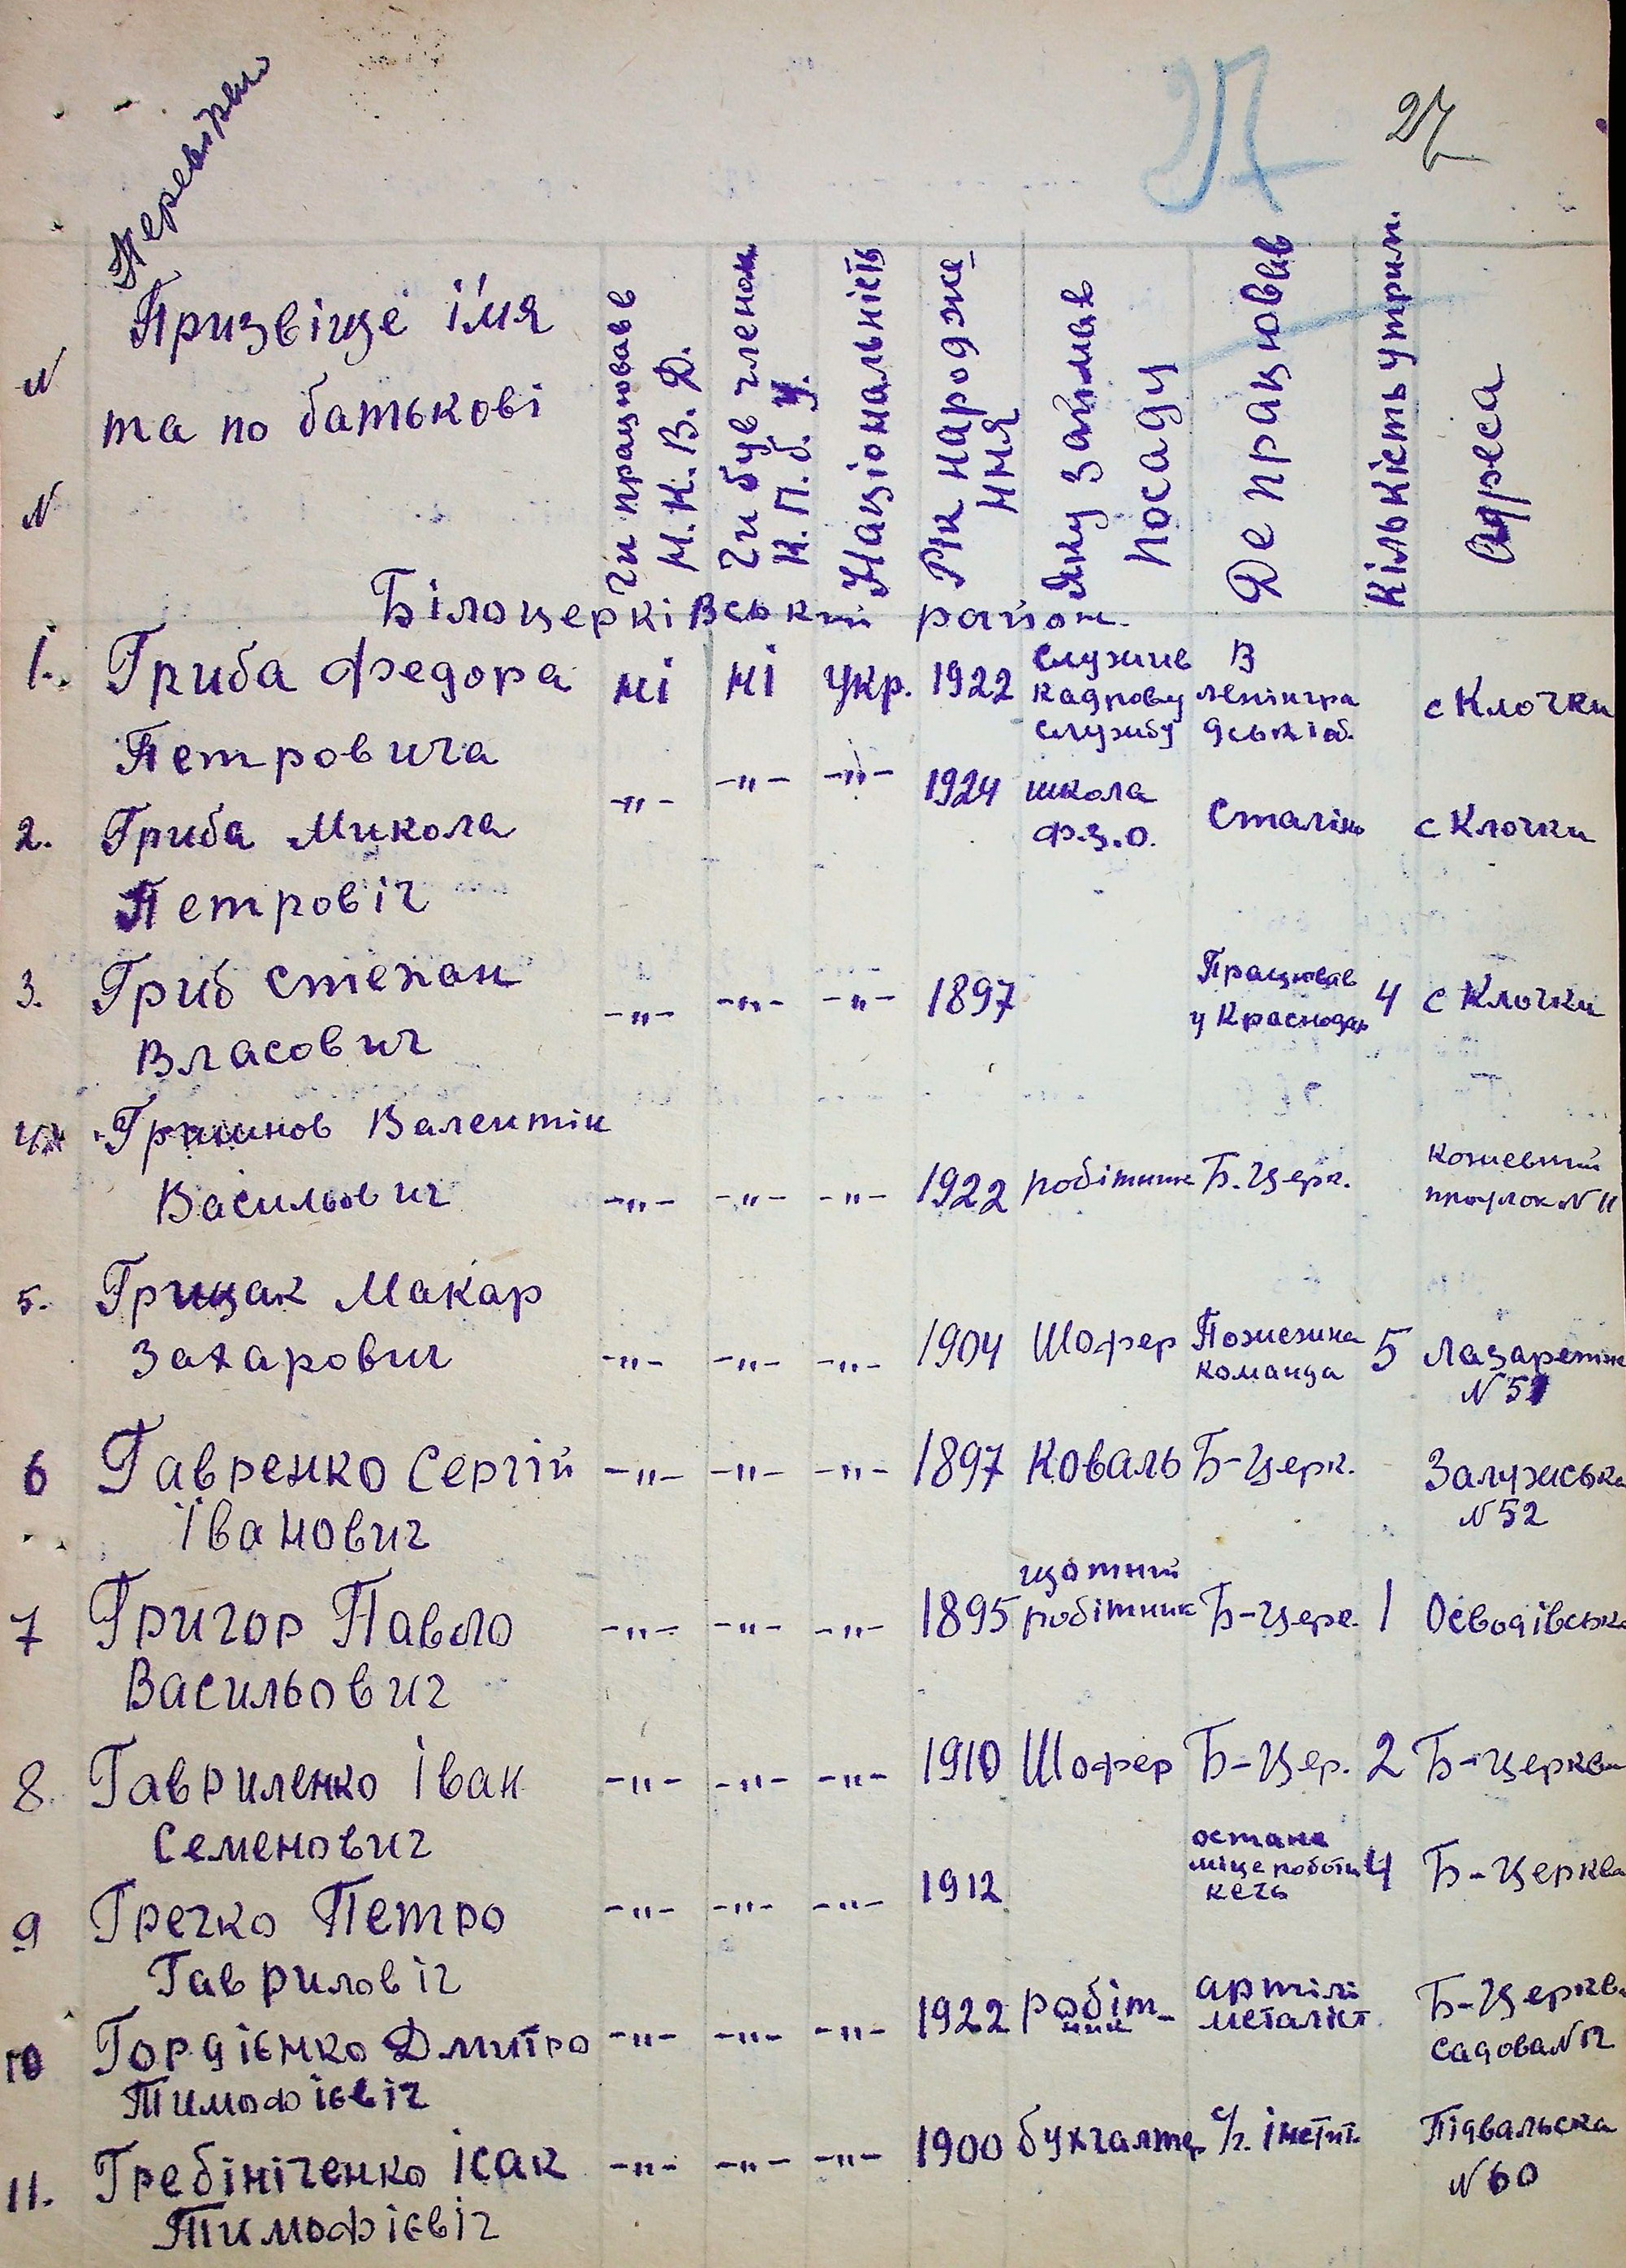 Перевірені
27
27
N N
Призвіще і'мя
та по батькові
Чи працював в
Н.К.В.Д.
Чи був членом
К.П.б.У.
Національність
Рік народже
ння
Яку займав
посаду
Де працював
Кількість утрим.
Адреса
Білоцерківський район.
1. Гриба Федора Петровича ні ні укр. 1922 служив кадрову службу в Ленінградській об. с Клочки
2. Гриба Микола Петровіч -"- -"- -"- 1924 школа Ф.З.О. Сталіно с Клочки
3. Гриб Степан Власович -"- -"- -"- 1897 Працював у Краснодар 4 с Клочки
4. Валентін Васильович -"- -"- -"- 1922 робітник Б.Церк. Кожевний проулок N 11
5. Грицак Макар Захарович -"- -"- -"- 1904 Шофер Пожежна команда 5 Лазаретн N 51
6 Гавренко Сергій Іванович -"- -"- -"- 1897 Коваль Б-Церк. Залузська N 52
7 Григор Павло Васильович -"- -"- -"- 1895 щотний робітник Б-Церк. 1
8. Гавриленко Іван Семенович -"- -"- -"- 1910 Шофер Б-Цер. 2 Б-Церква
9 Гречко Петро Гавриловіч -"- -"- -"- 1912 остане місце роботи 4 Б-Церква
10 Гордієнко Дмитро Тимофієвіч -"- -"- -"- 1922 робіт-ник артілі металіст. Б-Церква Садова N 12
11. Гребініченко Ісак Тимофієвіч -"- -"- -"- 1900 бухгалтер с/г. інстит. Підвальска N 60